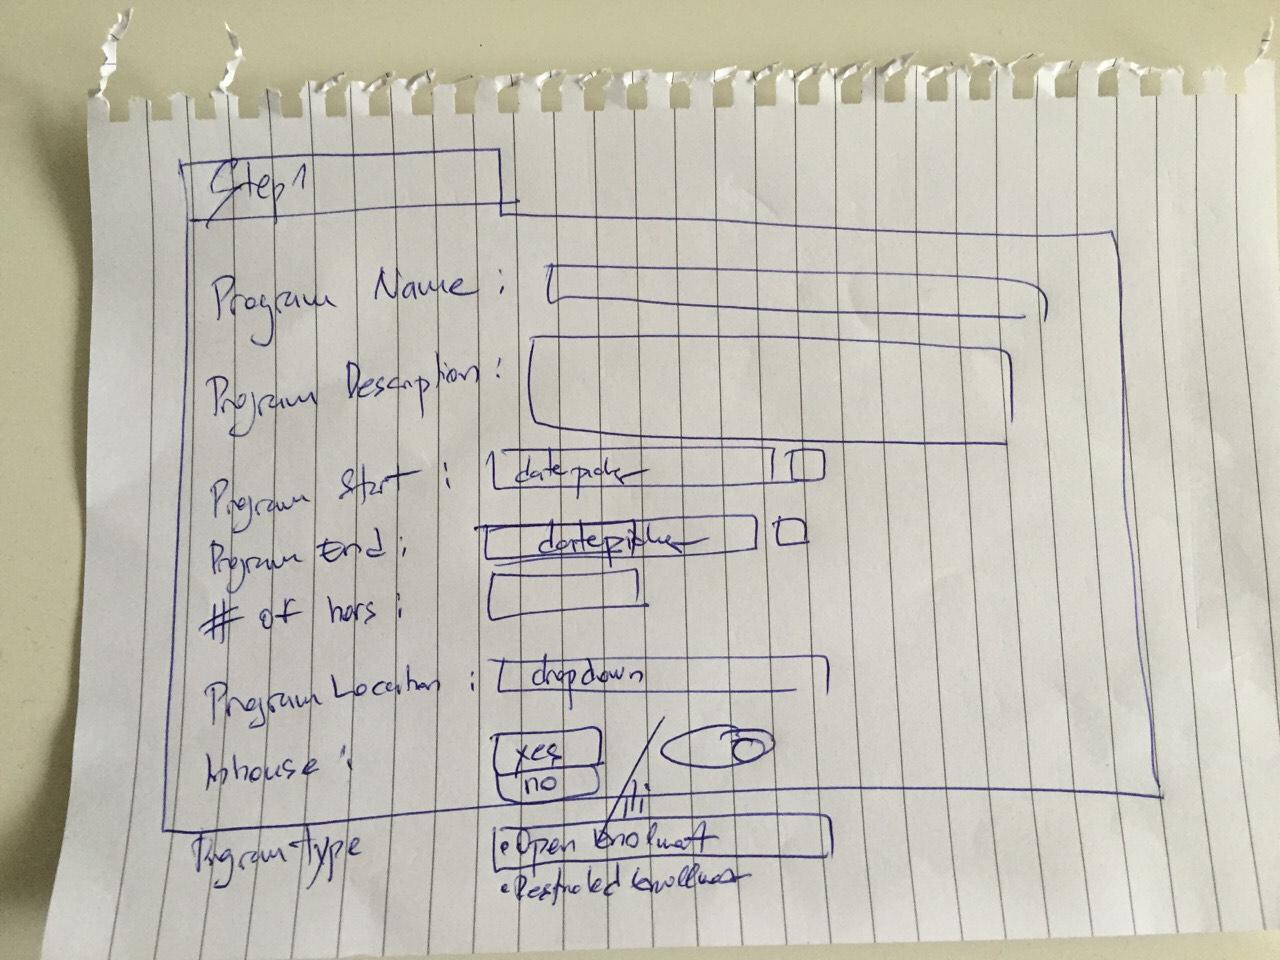 Step 1
Program Name :
Program Description :
Program Start : datepicker
Program End : datepicker
# of hors :
Program Location : dropdown
Inhouse : yes
no
Program type • Open Enrollment
• Restricted Enrollment